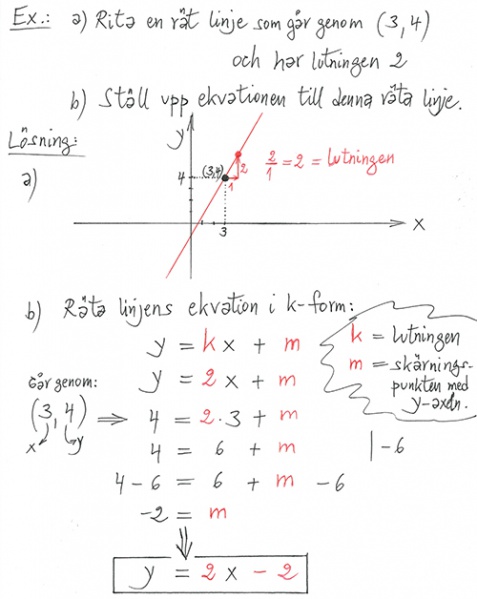 Ex.: a) Rita en rät linje som går genom (3,4)
och har lutningen 2
b) Ställ upp ekvationen till denna räta linje.
Lösning:
a)
y
4
(3,4)
2
1
2/1 = 2 = lutningen
3
x
b) Räta linjens ekvation i k-form:
y = kx + m
k = lutningen
m = skärnings-
punkten med
y-axeln.
y = 2x + m
Går genom:
(3,4) ⇒ 4 = 2·3 + m
x y
4 = 6 + m |-6
4-6 = 6 + m -6
-2 = m
⇓
y = 2x - 2